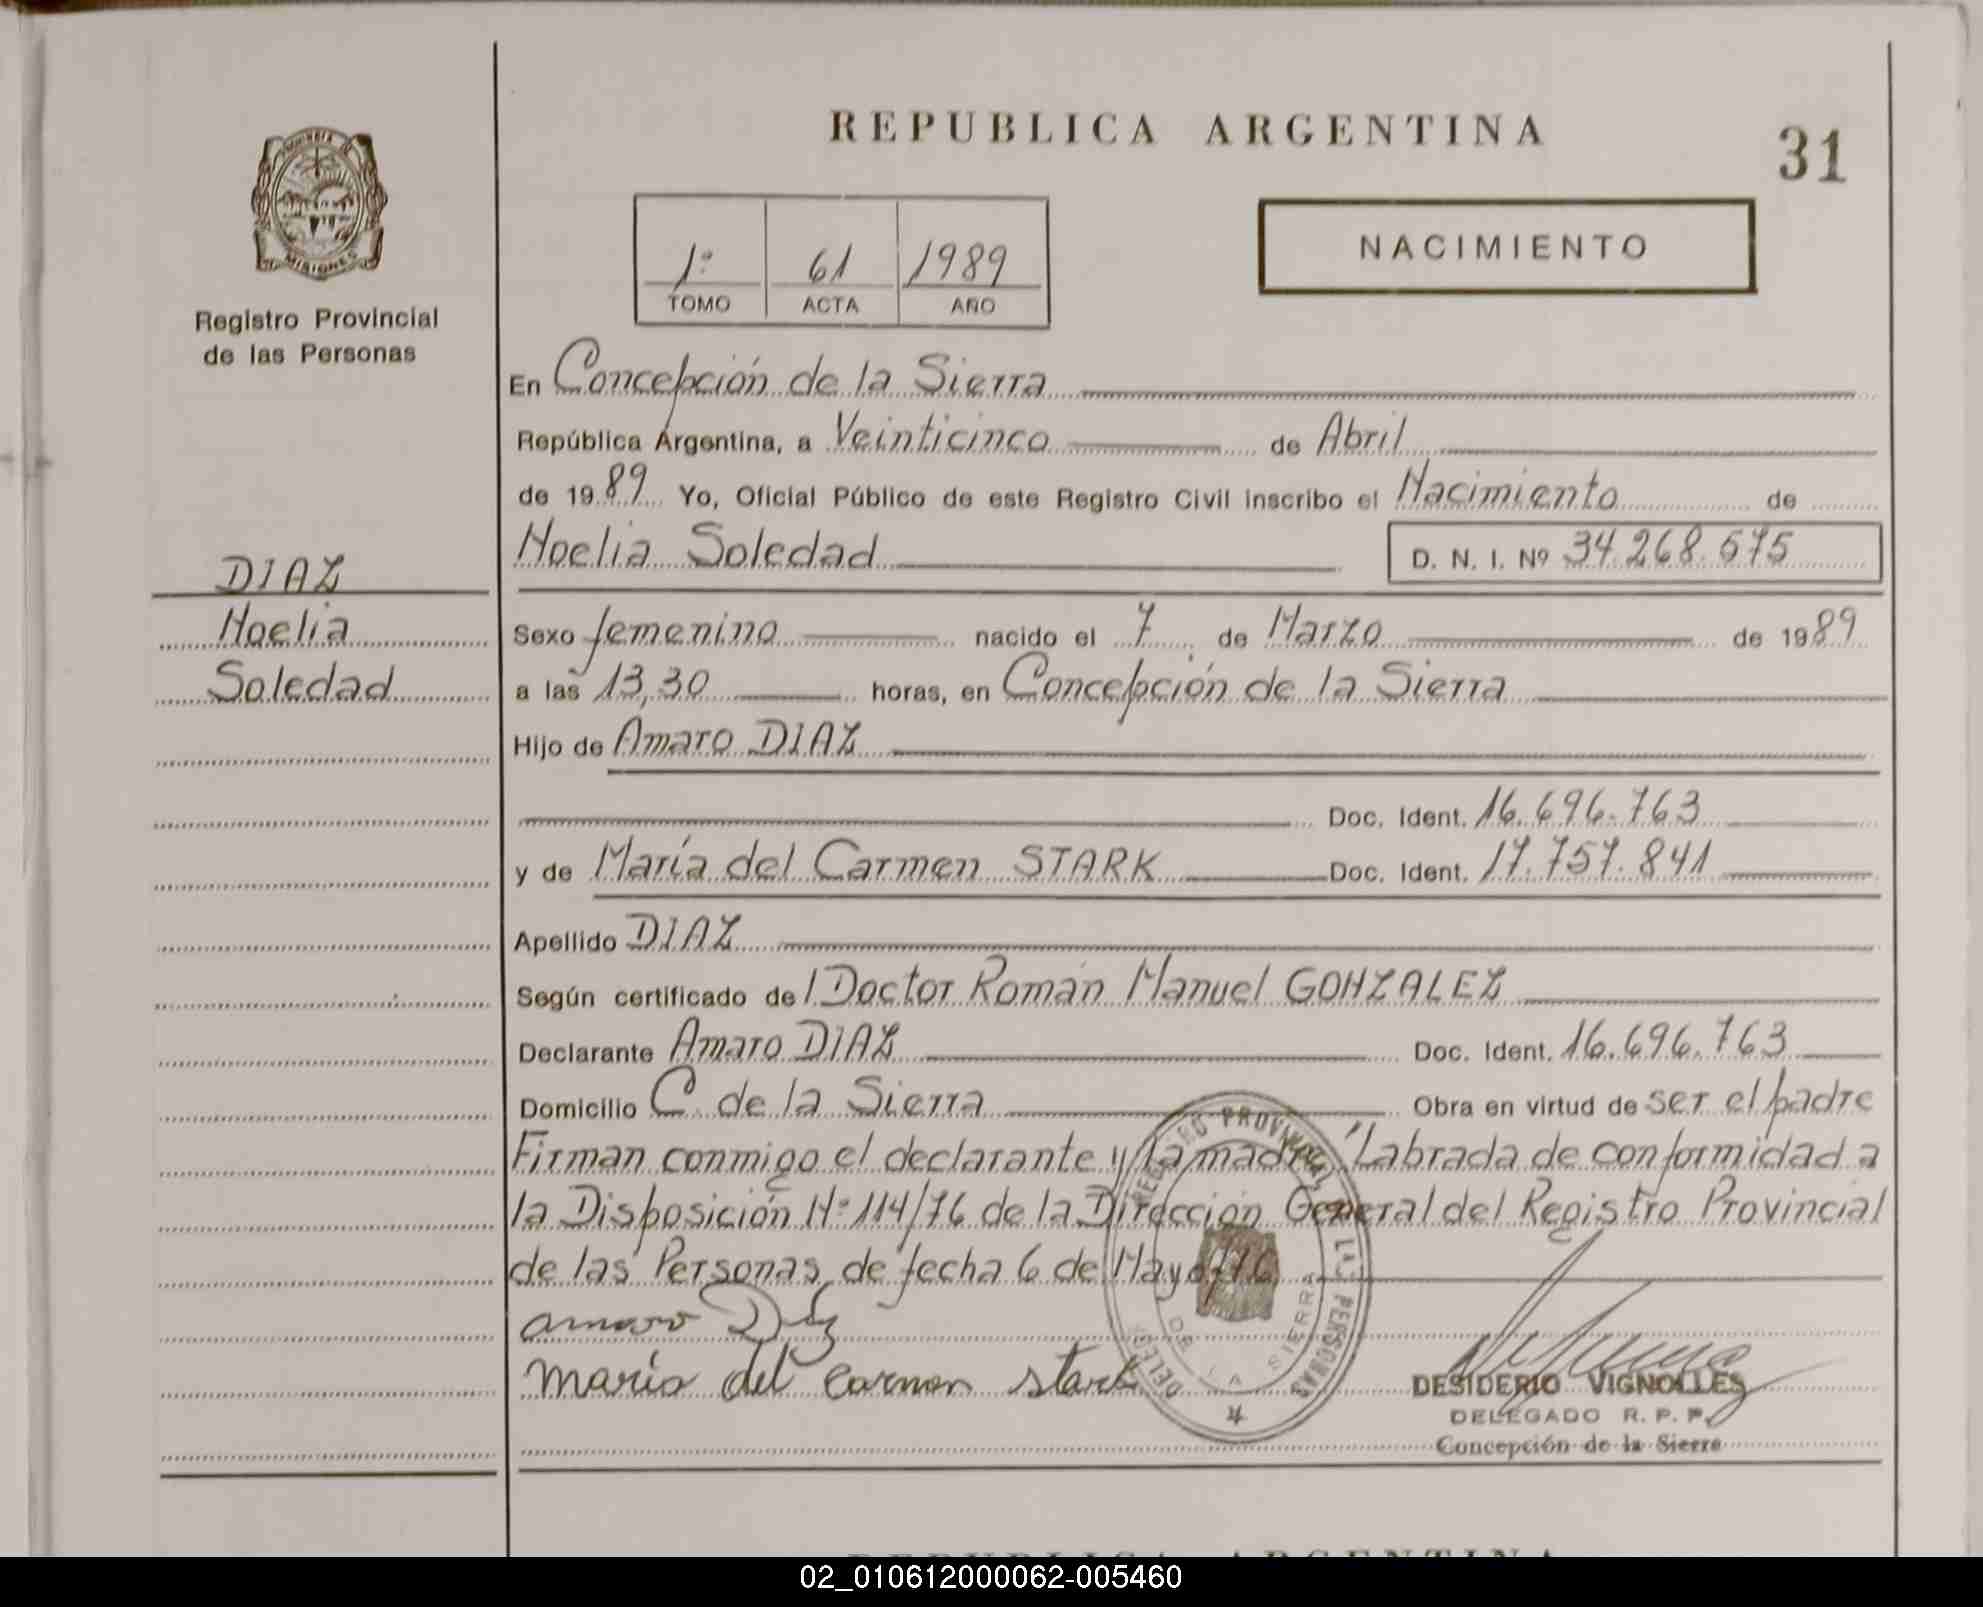 REPUBLICA ARGENTINA
31
MISIONES
Registro Provincial
de las Personas
1º 61 1989
TOMO ACTA AÑO
NACIMIENTO
En Concepción de la Sierra
República Argentina, a Veinticinco de Abril
de 1989 Yo, Oficial Público de este Registro Civil inscribo el Nacimiento de
Noelia Soledad D. N. I. Nº 34.268.575
DIAZ
Noelia
Soledad
Sexo femenino nacido el 7 de Marzo de 1989
a las 13,30 horas, en Concepción de la Sierra
Hijo de Amaro DIAZ
Doc. Ident. 16.696.763
y de María del Carmen STARK Doc. Ident. 17.757.841
Apellido DIAZ
Según certificado del Doctor Román Manuel GONZALEZ
Declarante Amaro DIAZ Doc. Ident. 16.696.763
Domicilio C. de la Sierra Obra en virtud de ser el padre
Firman conmigo el declarante y la madre, "Labrada de conformidad a
la Disposición Nº 114/76 de la Dirección General del Registro Provincial
de las Personas, de fecha 6 de Mayo/76
amaro Diaz
maria del carmen stark
REGISTRO PROVINCIAL DE LAS PERSONAS
DE LA SIERRA
DESIDERIO VIGNOLLES
DELEGADO R. P. P.
Concepción de la Sierra
REPUBLICA ARGENTINA
02_010612000062-005460